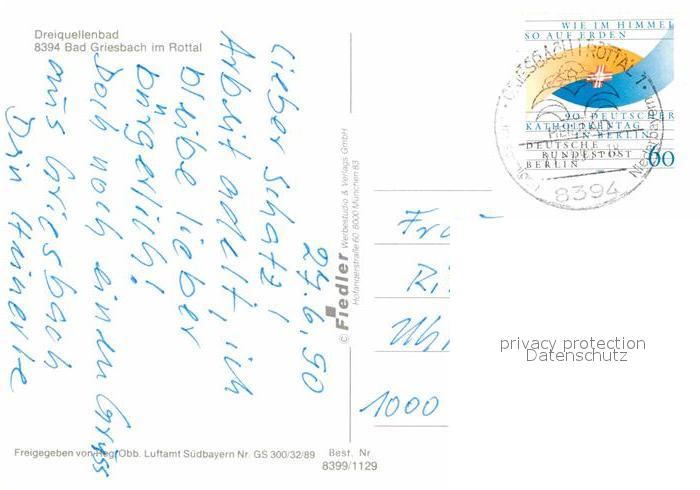 Dreiquellenbad
8394 Bad Griesbach im Rottal
29.6.90
Lieber Schatz!
Arbeit adelt, ich
bleibe lieber
bürgerlich!
Doch noch einen Gruss
aus Griesbach
Dein Heinerle
© Fiedler Werbestudio & Verlags GmbH
Hofangerstraße 60, 8000 München 83
WIE IM HIMMEL
SO AUF ERDEN
90. DEUTSCHER
KATHOLIKENTAG
IN BERLIN
DEUTSCHE
BUNDESPOST
BERLIN
60
GRIESBACH I ROTTAL 1
Niederbayern
8394
Fr
R
Uh
1000
privacy protection
Datenschutz
Freigegeben von Reg. Obb. Luftamt Südbayern Nr. GS 300/32/89
Best. Nr
8399/1129